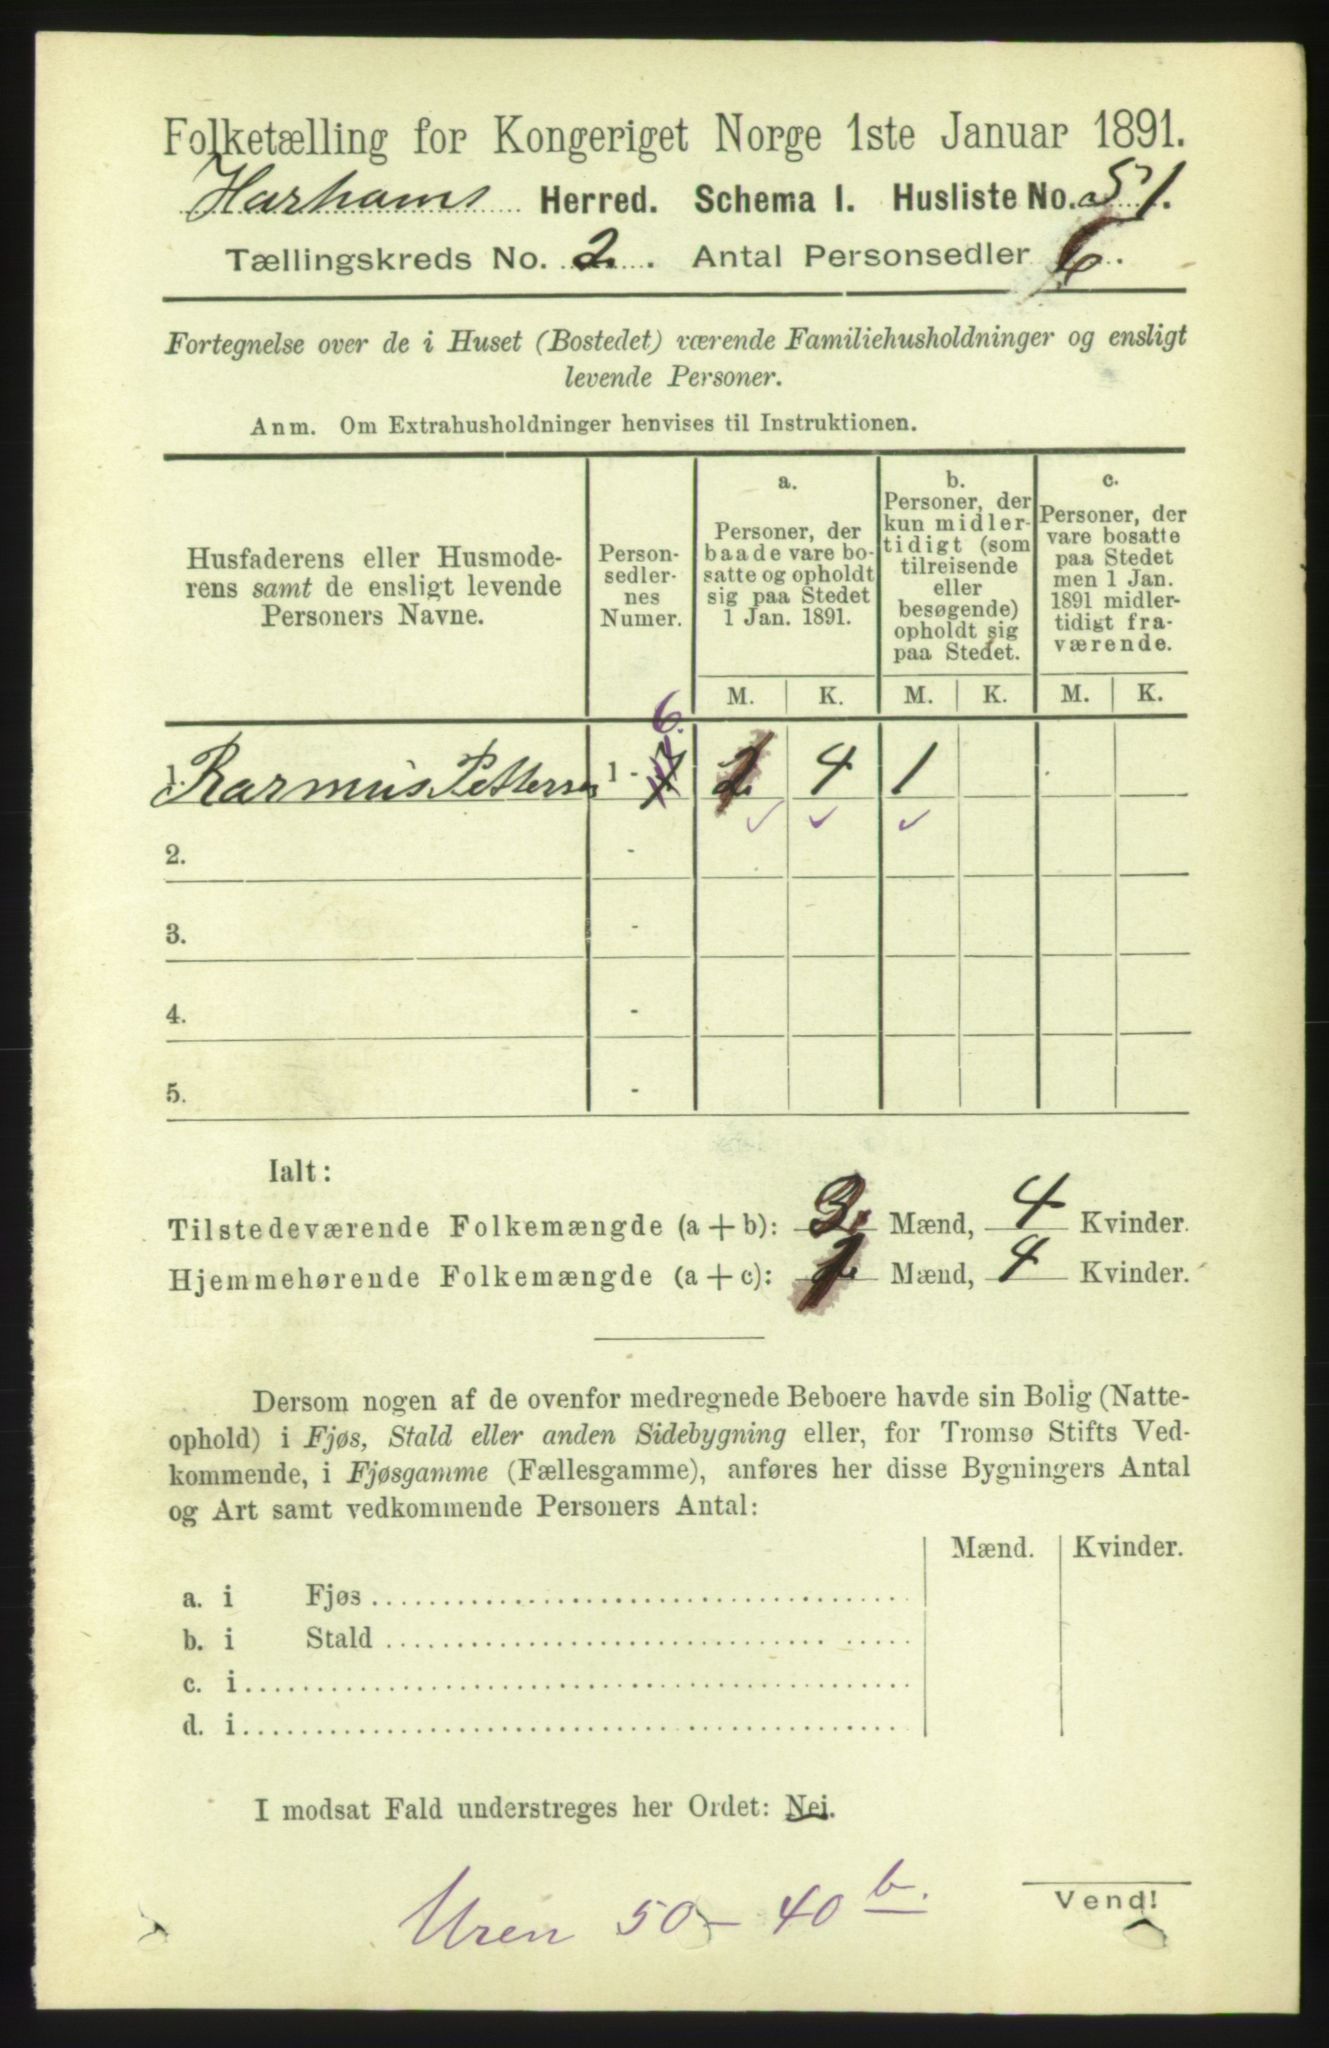 Folketælling for Kongeriget Norge 1ste Januar 1891.
Harhams Herred. Schema I. Husliste No. 51.
Tællingskreds No. 2. Antal Personsedler 6.
Fortegnelse over de i Huset (Bostedet) værende Familiehusholdninger og ensligt
levende Personer.
Anm. Om Extrahusholdninger henvises til Instruktionen.
Husfaderens eller Husmode-
rens samt de ensligt levende
Personers Navne.
Person-
sedler-
nes
Numer.
a.
Personer, der
baade vare bo-
satte og opholdt
sig paa Stedet
1 Jan. 1891.
b.
Personer, der
kun midler-
tidigt (som
tilreisende
eller
besøgende)
opholdt sig
paa Stedet.
c.
Personer, der
vare bosatte
paa Stedet
men 1 Jan.
1891 midler-
tidigt fra-
værende.
M. K. M. K. M. K.
6.
1. Rasmus Petterse 1 - 7 4 1
2. -
3. -
4. -
5. -
Ialt:
Tilstedeværende Folkemængde (a + b): Mænd, 4 Kvinder.
Hjemmehørende Folkemængde (a + c): Mænd, 4 Kvinder.
Dersom nogen af de ovenfor medregnede Beboere havde sin Bolig (Natte-
ophold) i Fjøs, Stald eller anden Sidebygning eller, for Tromsø Stifts Ved-
kommende, i Fjøsgamme (Fællesgamme), anføres her disse Bygningers Antal
og Art samt vedkommende Personers Antal:
Mænd. Kvinder.
a. i Fjøs
b. i Stald
c. i
d. i
I modsat Fald understreges her Ordet: Nei.
Uren 50 - 40 b.
Vend!